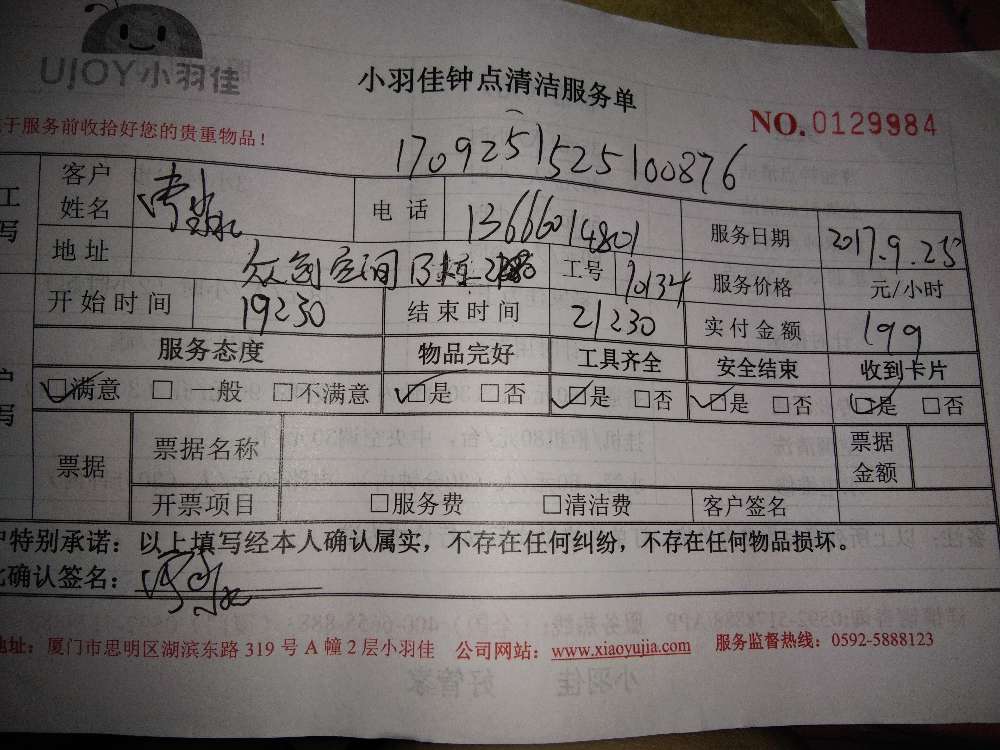 UJOY小羽佳
小羽佳钟点清洁服务单
于服务前收拾好您的贵重物品！
NO.0129984
1709251525100876
工 客户姓名 电话 13666014801 服务日期 2017.9.25
写 地址 众创空间B栋 工号 90134 服务价格 元/小时
开始时间 19230 结束时间 21230 实付金额 199
服务态度 物品完好 工具齐全 安全结束 收到卡片
户 ☑满意 □一般 □不满意 ☑是 □否 ☑是 □否 ☑是 □否 ☑是 □否
写 票据 票据名称 票据金额
开票项目 □服务费 □清洁费 客户签名
户特别承诺：以上填写经本人确认属实，不存在任何纠纷，不存在任何物品损坏。
此确认签名：
地址：厦门市思明区湖滨东路319号A幢2层小羽佳 公司网站：www.xiaoyujia.com 服务监督热线：0592-5888123